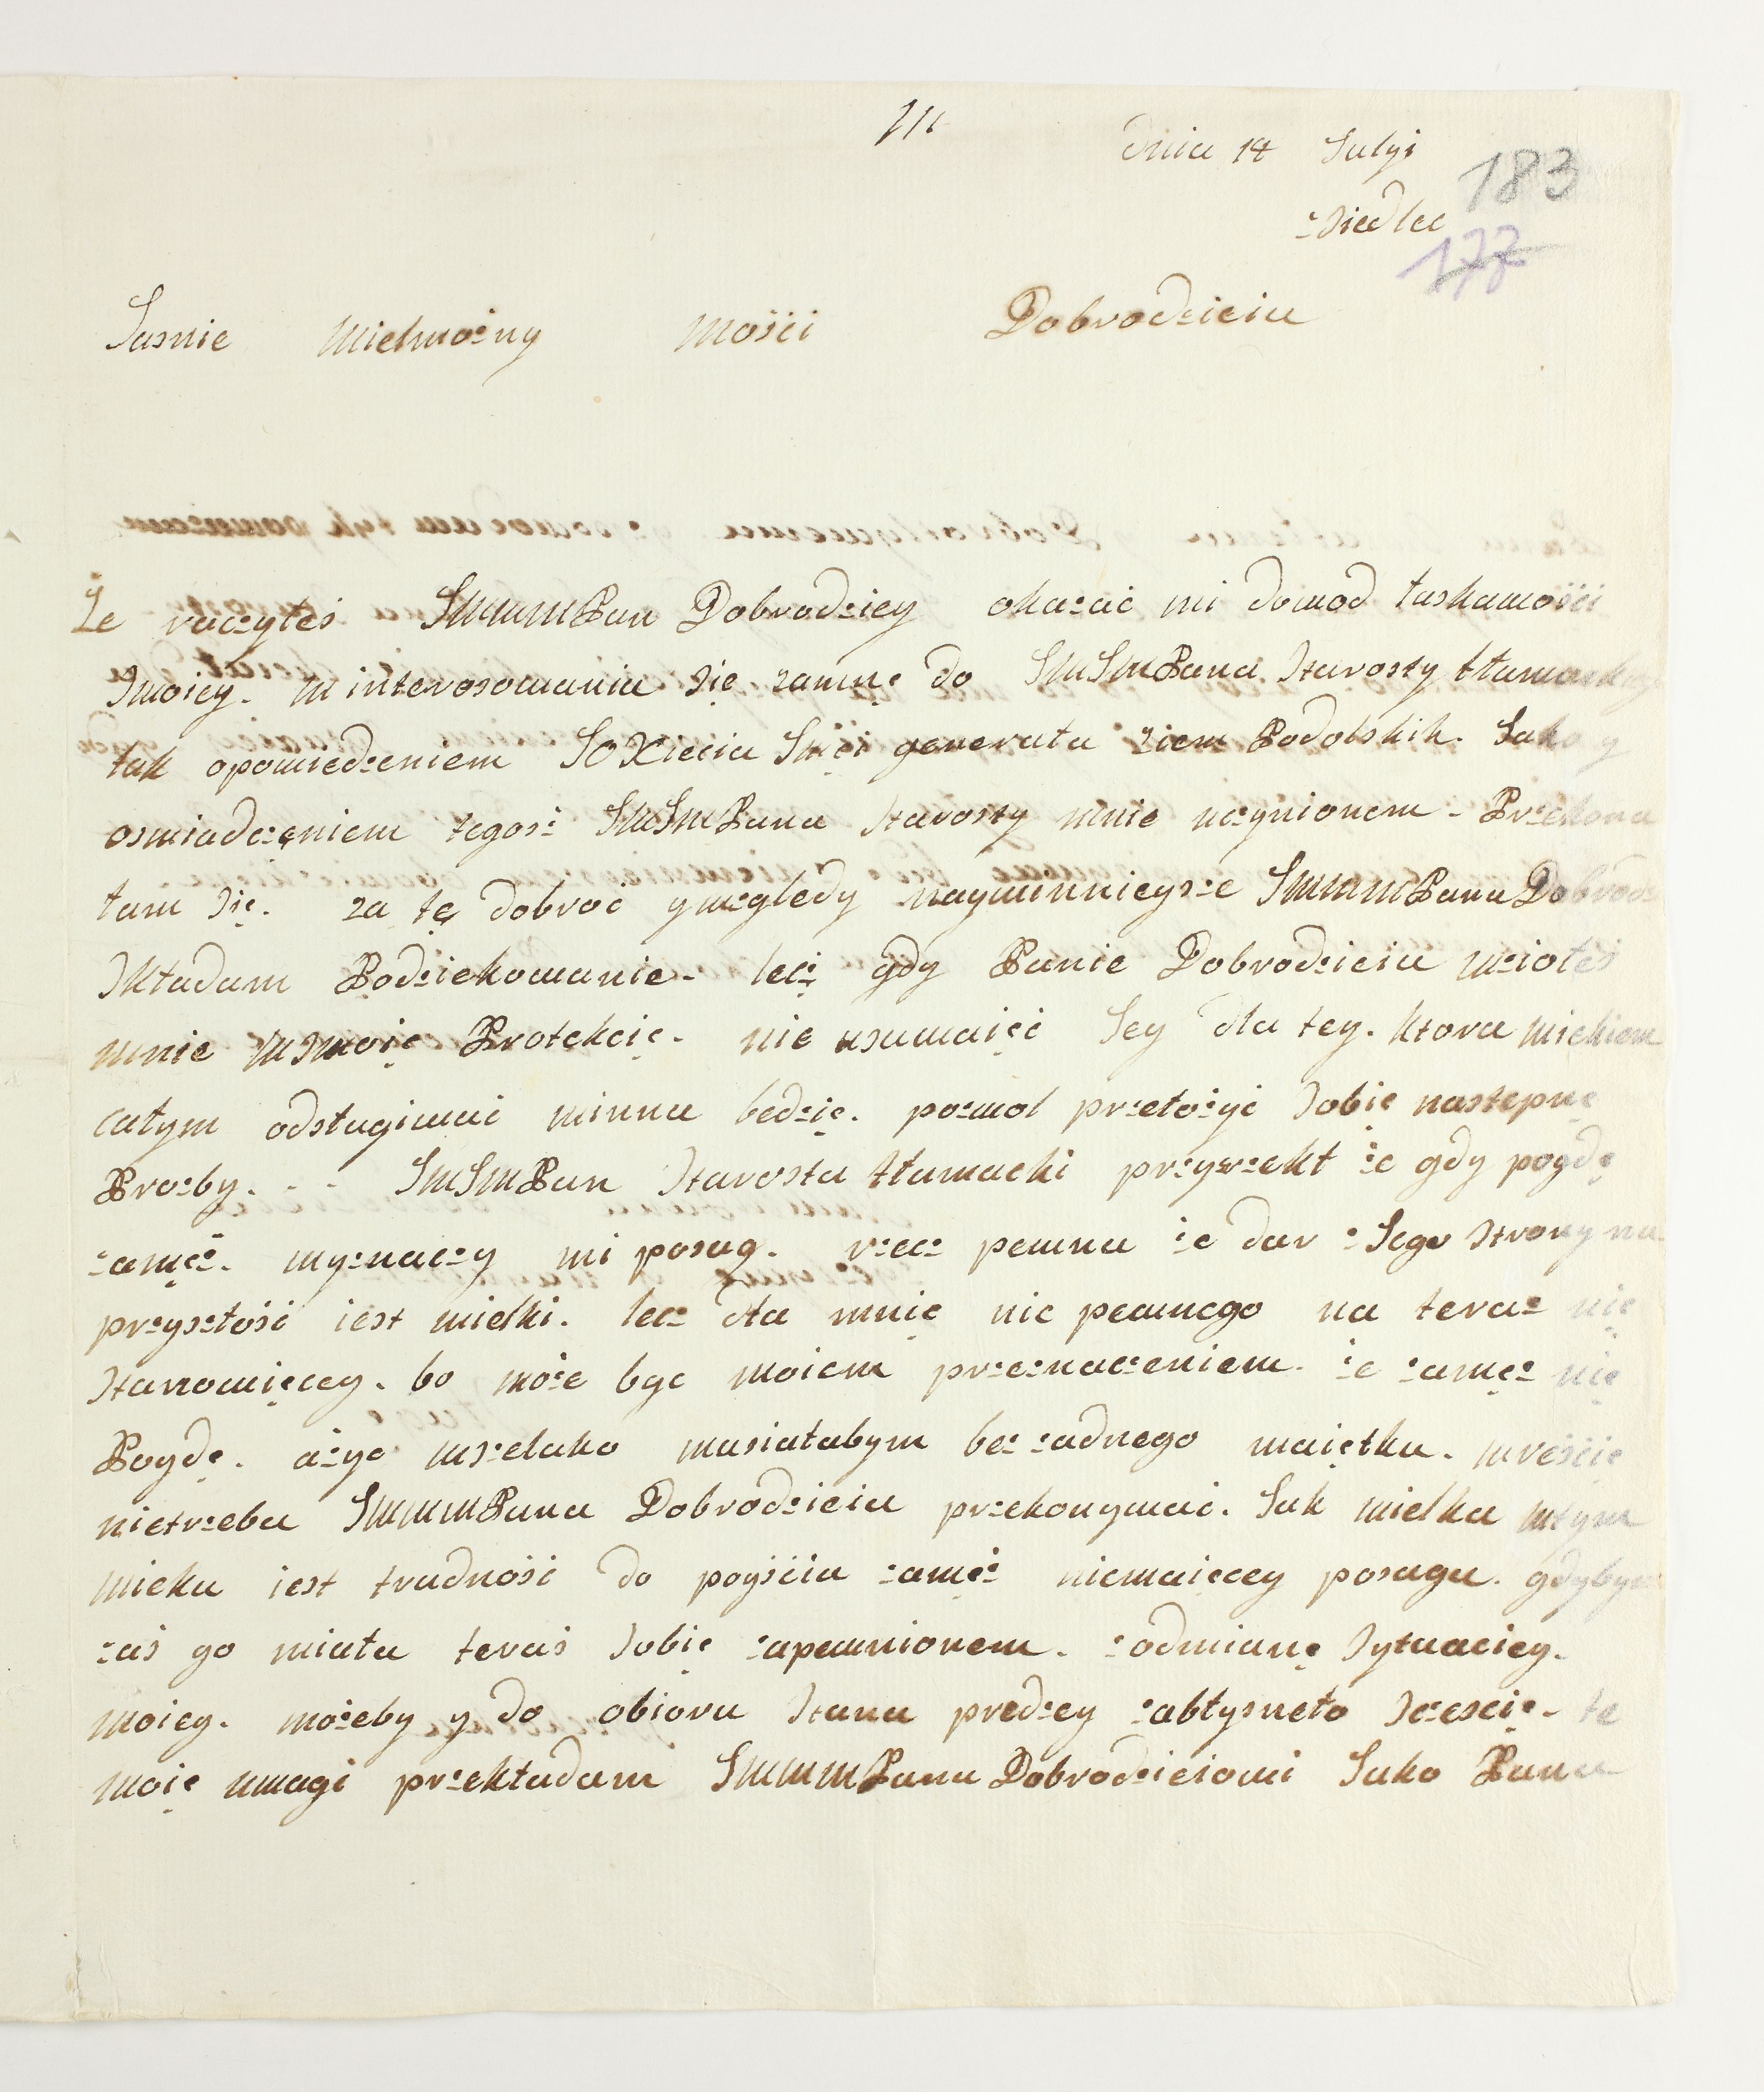 dnia 14 Julyi
183
z Siedlec
177
Jasnie Wielmożny Mości Dobrodzieiu
Że raczyłeś JWWMPan Dobrodziey okazać mi dowod łaskawości
Swoiey. w interosowaniu się zamnę do JWJMPana Starosty tłumackieg
tak opowiedzeniem JOXięcia Jmći generała ziem Podolskih. Jako y
oswiadczęniem tegosz JWJMPana Starosty mnie uczynionem - Przekona
łam się. za tę dobroć y względy naywinnieysze JWWMPanu Dobrodz
składam Podziekowanie - lecz gdy Panie Dobrodzieiu wziołeś
mnie w Swoię Protekcię - nie usuwaięć Jey dla tey. ktora wiekiem
całym odsługiwać winna bedzię. pozwol przełożyć Sobię nastepnę
Prozby. - - JWJMPan Starosta tłumacki przyrzekł że gdy pogdę
zamęż. wyznaczy mi posag. rzecz pewna że dar z Jego Strony na
przyszłość iest wielki. lecz dla mnię nic pewnego na teraz nię
Stanowięcey. bo może byc moiem przeznaczeniem. że zamęz nię
Pogdę. a życ wszelako musiałabym bez żadnego maiętku. wreśćię
nietrzeba JWWMPana Dobrodzieia przekonywać. Jak wielka wtym
wieku iest trudność do poyśćia zamęż niemaięcey posagu. gdybym
zaś go miała teraś Sobię zapewnionem. z odmianę Sytuaciey.
moiey. możeby y do obioru Stanu predzey zabłysneło Szczescię - te
moię uwagi przekładam JWWMPanu Dobrodzieiowi Jako Panu